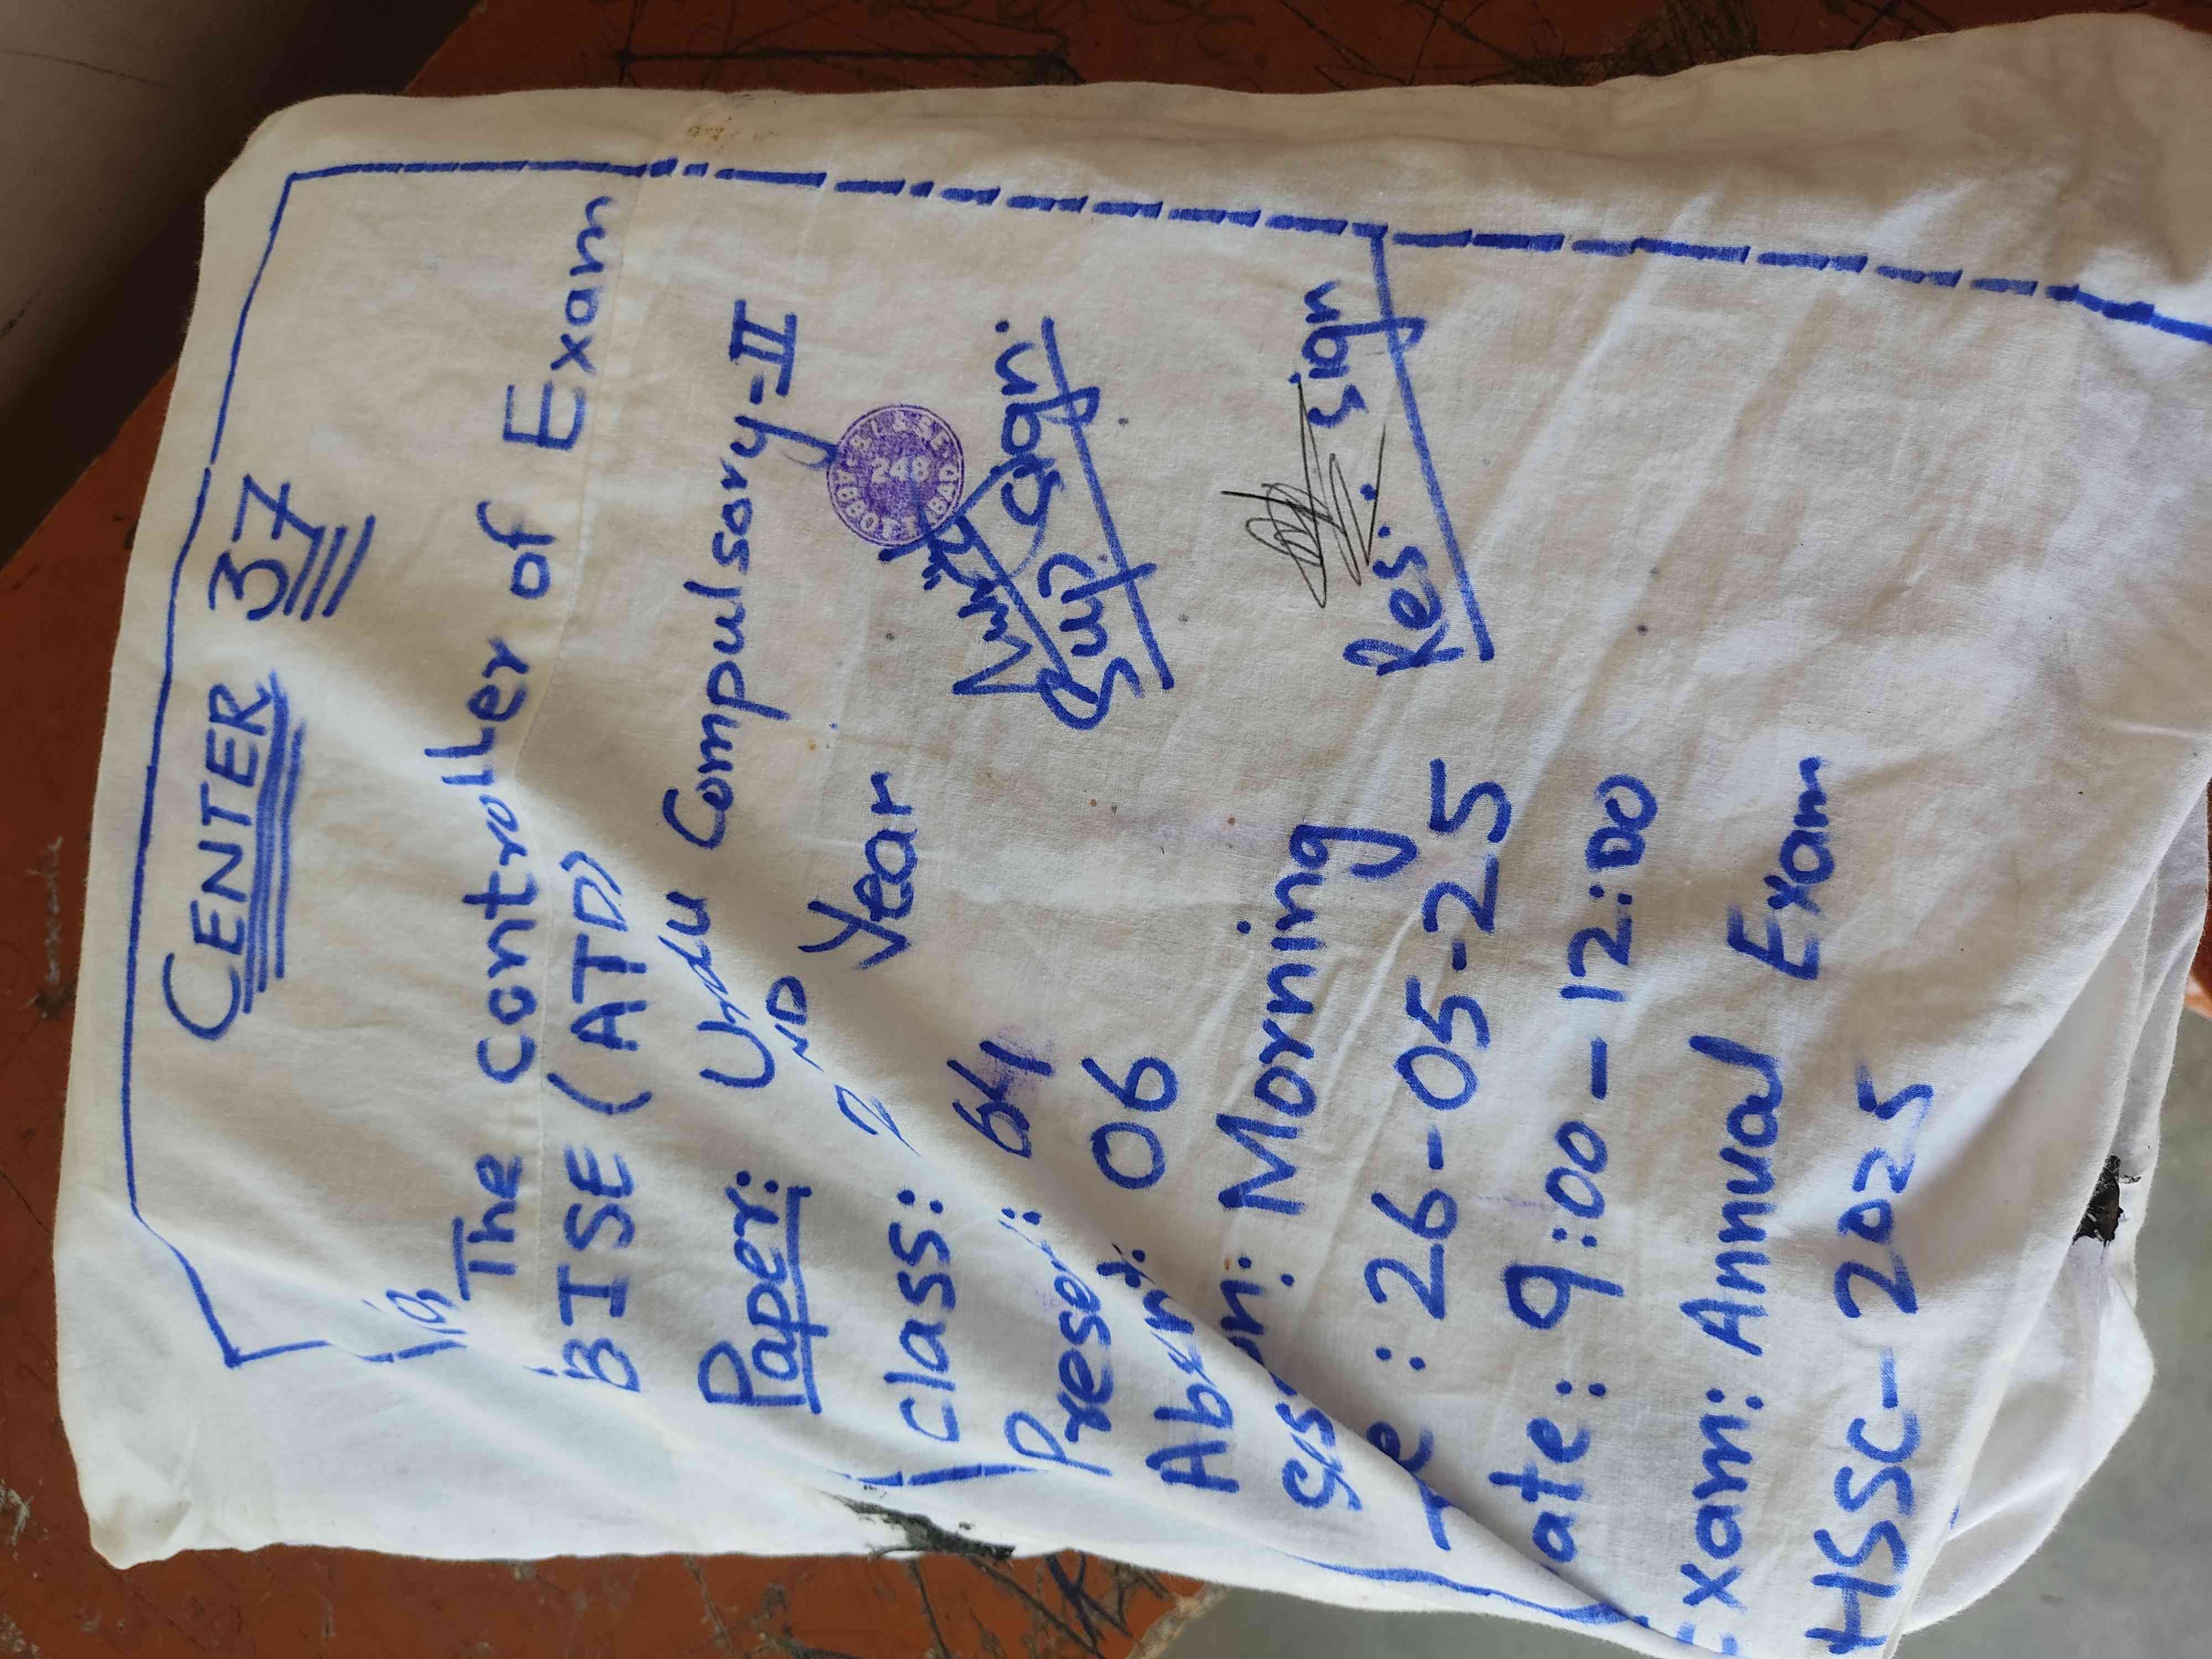 CENTER 37
The controller of Exam
BISE (ATD)
Paper: Urdu Compulsory-II
class: 2ND Year
Present: 64
Absent: 06
Morning
: 26-05-25
ate: 9:00-12:00
Exam: Annual Exam
HSSC-2025
248
Sup Sign:
Res: Sign